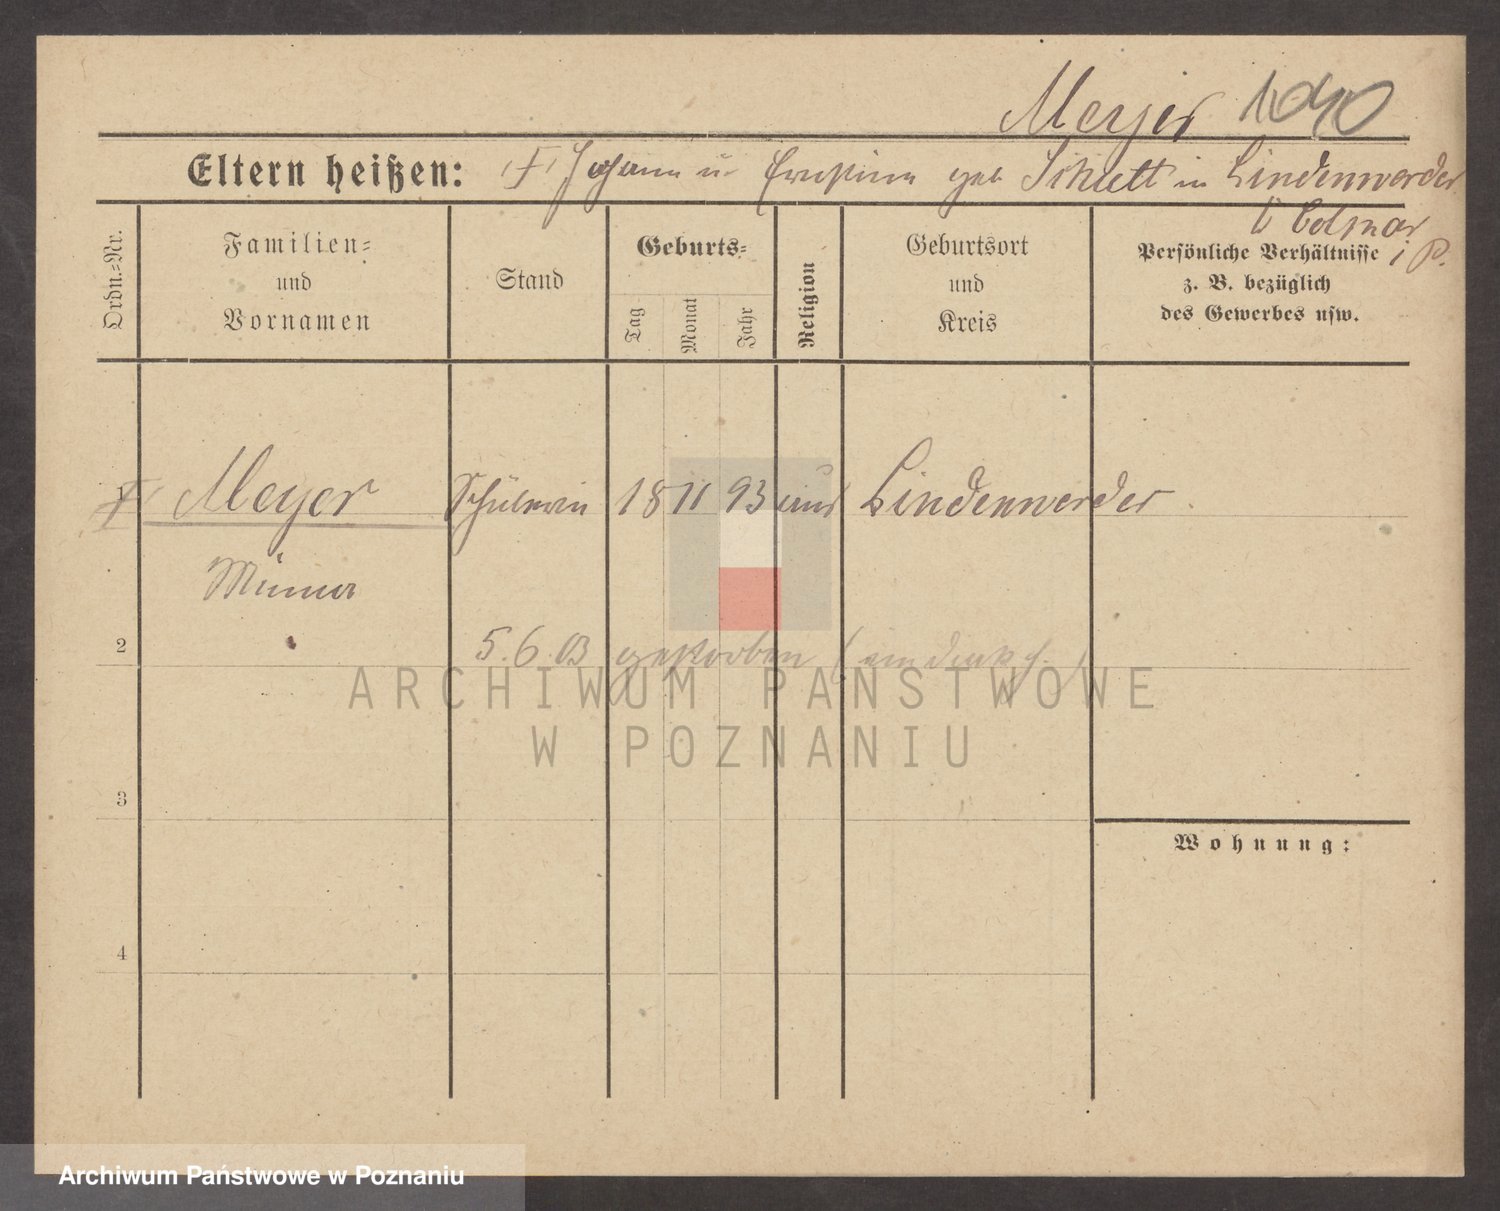 Meyer 1040
Eltern heißen: Johann u Ernestine geb Schlett in Lindenwerder
b Colmar
i P.
Ordn.=Nr.
Familien=
und
Vornamen
Stand
Geburts=
Tag
Monat
Jahr
Religion
Geburtsort
und
Kreis
Persönliche Verhältnisse
z. B. bezüglich
des Gewerbes usw.
Meyer Schülerin 18 11 93 Lindenwerder
Minna
2
5.6.03 gestorben
3
Wohnung:
4
ARCHIWUM PAŃSTWOWE
W POZNANIU
Archiwum Państwowe w Poznaniu